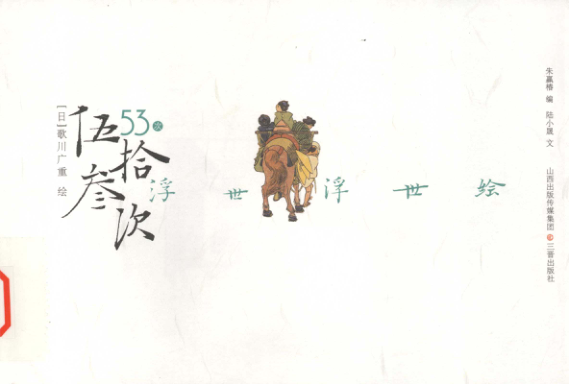 伍拾叁次
53次
[日]歌川广重 绘
浮世浮世绘
朱赢椿 编 陆小晟 文
山西出版传媒集团 三晋出版社